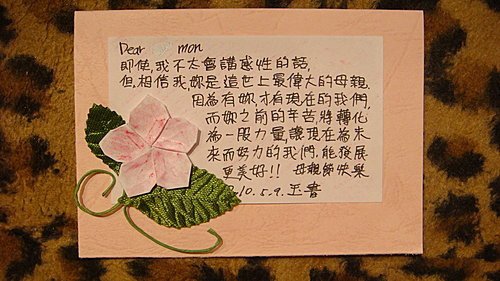 Dear mom
即使,我不太會講感性的話,
但,相信我,妳是這世上最偉大的母親.
因為有妳,才有現在的我們,
而妳之前的辛苦,將轉化
為一股力量讓現在為未
來而努力的我們,能發展
更美好!! 母親節快樂
10.5.9.